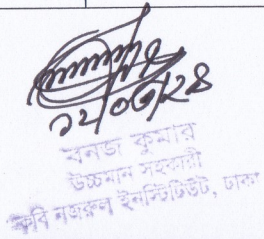 ১২/০৩/২৪
বনজ কুমার
উচ্চমান সহকারী
কবি নজরুল ইনস্টিটিউট, ঢাকা